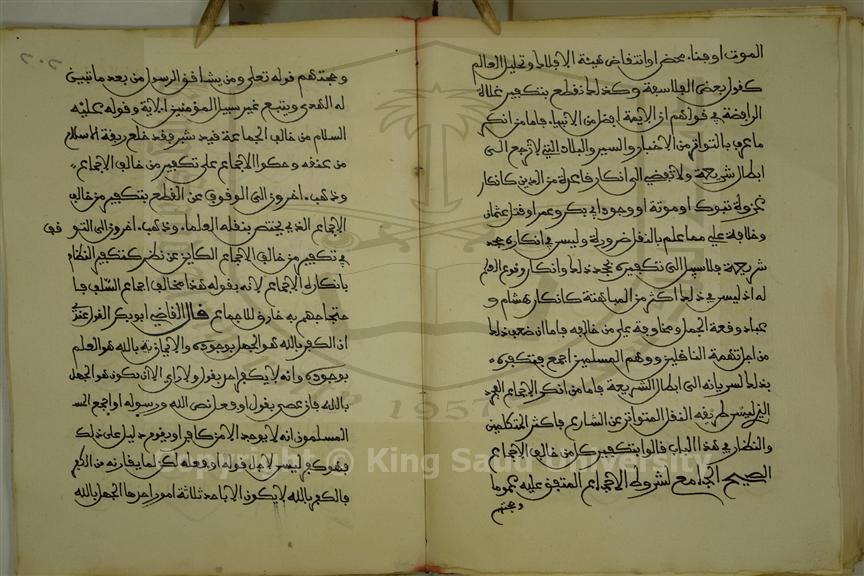 الموت او فناء محض او انتفاض هيئة الافلاك وتحليل العالم
كقول بعض الفلاسفة وكذلك نقطع بتكفير غلاة
الرافضة في قولهم ان الايمة افضل من الانبيا، فاما من انكر
ما عرف بالتواتر من الاخبار والسير والبلاد التي لا ترجع الى
ابطال شريعة ولا تفضي الى انكار قاعدة من الدين كانكار
غزوة تبوك او موتة او وجود ابي بكر وعمر او قتل عثمان
وخلافة علي مما علم بالنقل ضرورة وليس في انكاره جحد
شريعة فلا سبيل الى تكفيره بجحد ذلك وانكار وقوع العلم
له اذ ليس في ذلك اكثر من المباهتة كانكار هشام و
عباد وقعة الجمل ومحاربة علي من خالفه فاما ان ضعف ذلك
من اجل تهمة الناقلين ووهم المسلمين اجمع فنكفره
بذلك لسريانه الى ابطال الشريعة فاما من انكر الاجماع المجرد
الذي ليس طريقه النقل المتواتر عن الشارع فاكثر المتكلمين
والنظار في هذا الباب قالوا بتكفير كل من خالف الاجماع
الصحيح الجامع لشروط الاجماع المتفق عليه عموما
وحجتهم
وحجتهم قوله تعلى ومن يشاقق الرسول من بعد ما تبين
له الهدى ويتبع غير سبيل المؤمنين الاية وقوله عليه
السلام من خالف الجماعة قيد شبر فقد خلع ربقة الاسلام
من عنقه وحكوا الاجماع على تكفير من خالف الاجماع
وذهب اخرون الى الوقوف عن القطع بتكفير من خالف
الاجماع الذي يختص بنقله العلماء وذهب اخرون الى التوقف
في تكفير من خالف الاجماع الكاين عن نظر كتكفير النظام
بانكاره الاجماع لانه بقوله هذا مخالف اجماع السلف با
حتجاجهم به خارق للاجماع قال القاضي ابو بكر القول عندي
ان الكفر بالله هو الجهل بوجوده والايمان بالله هو العلم
بوجوده وانه لا يكفر احد بقول ولا راي الا ان يكون هو الجهل
بالله فان عصى بقول او فعل نص الله ورسوله او اجمع
المسلمون انه لا يوجد الا من كافر او يقوم دليل على ذلك
فقد كفر ليس لاجل قوله او فعله لكن لما يقارنه من الكفر
فالكفر بالله لا يكون الا باحد ثلاثة امور احدها الجهل بالله
Copyright © King Saud University
1957